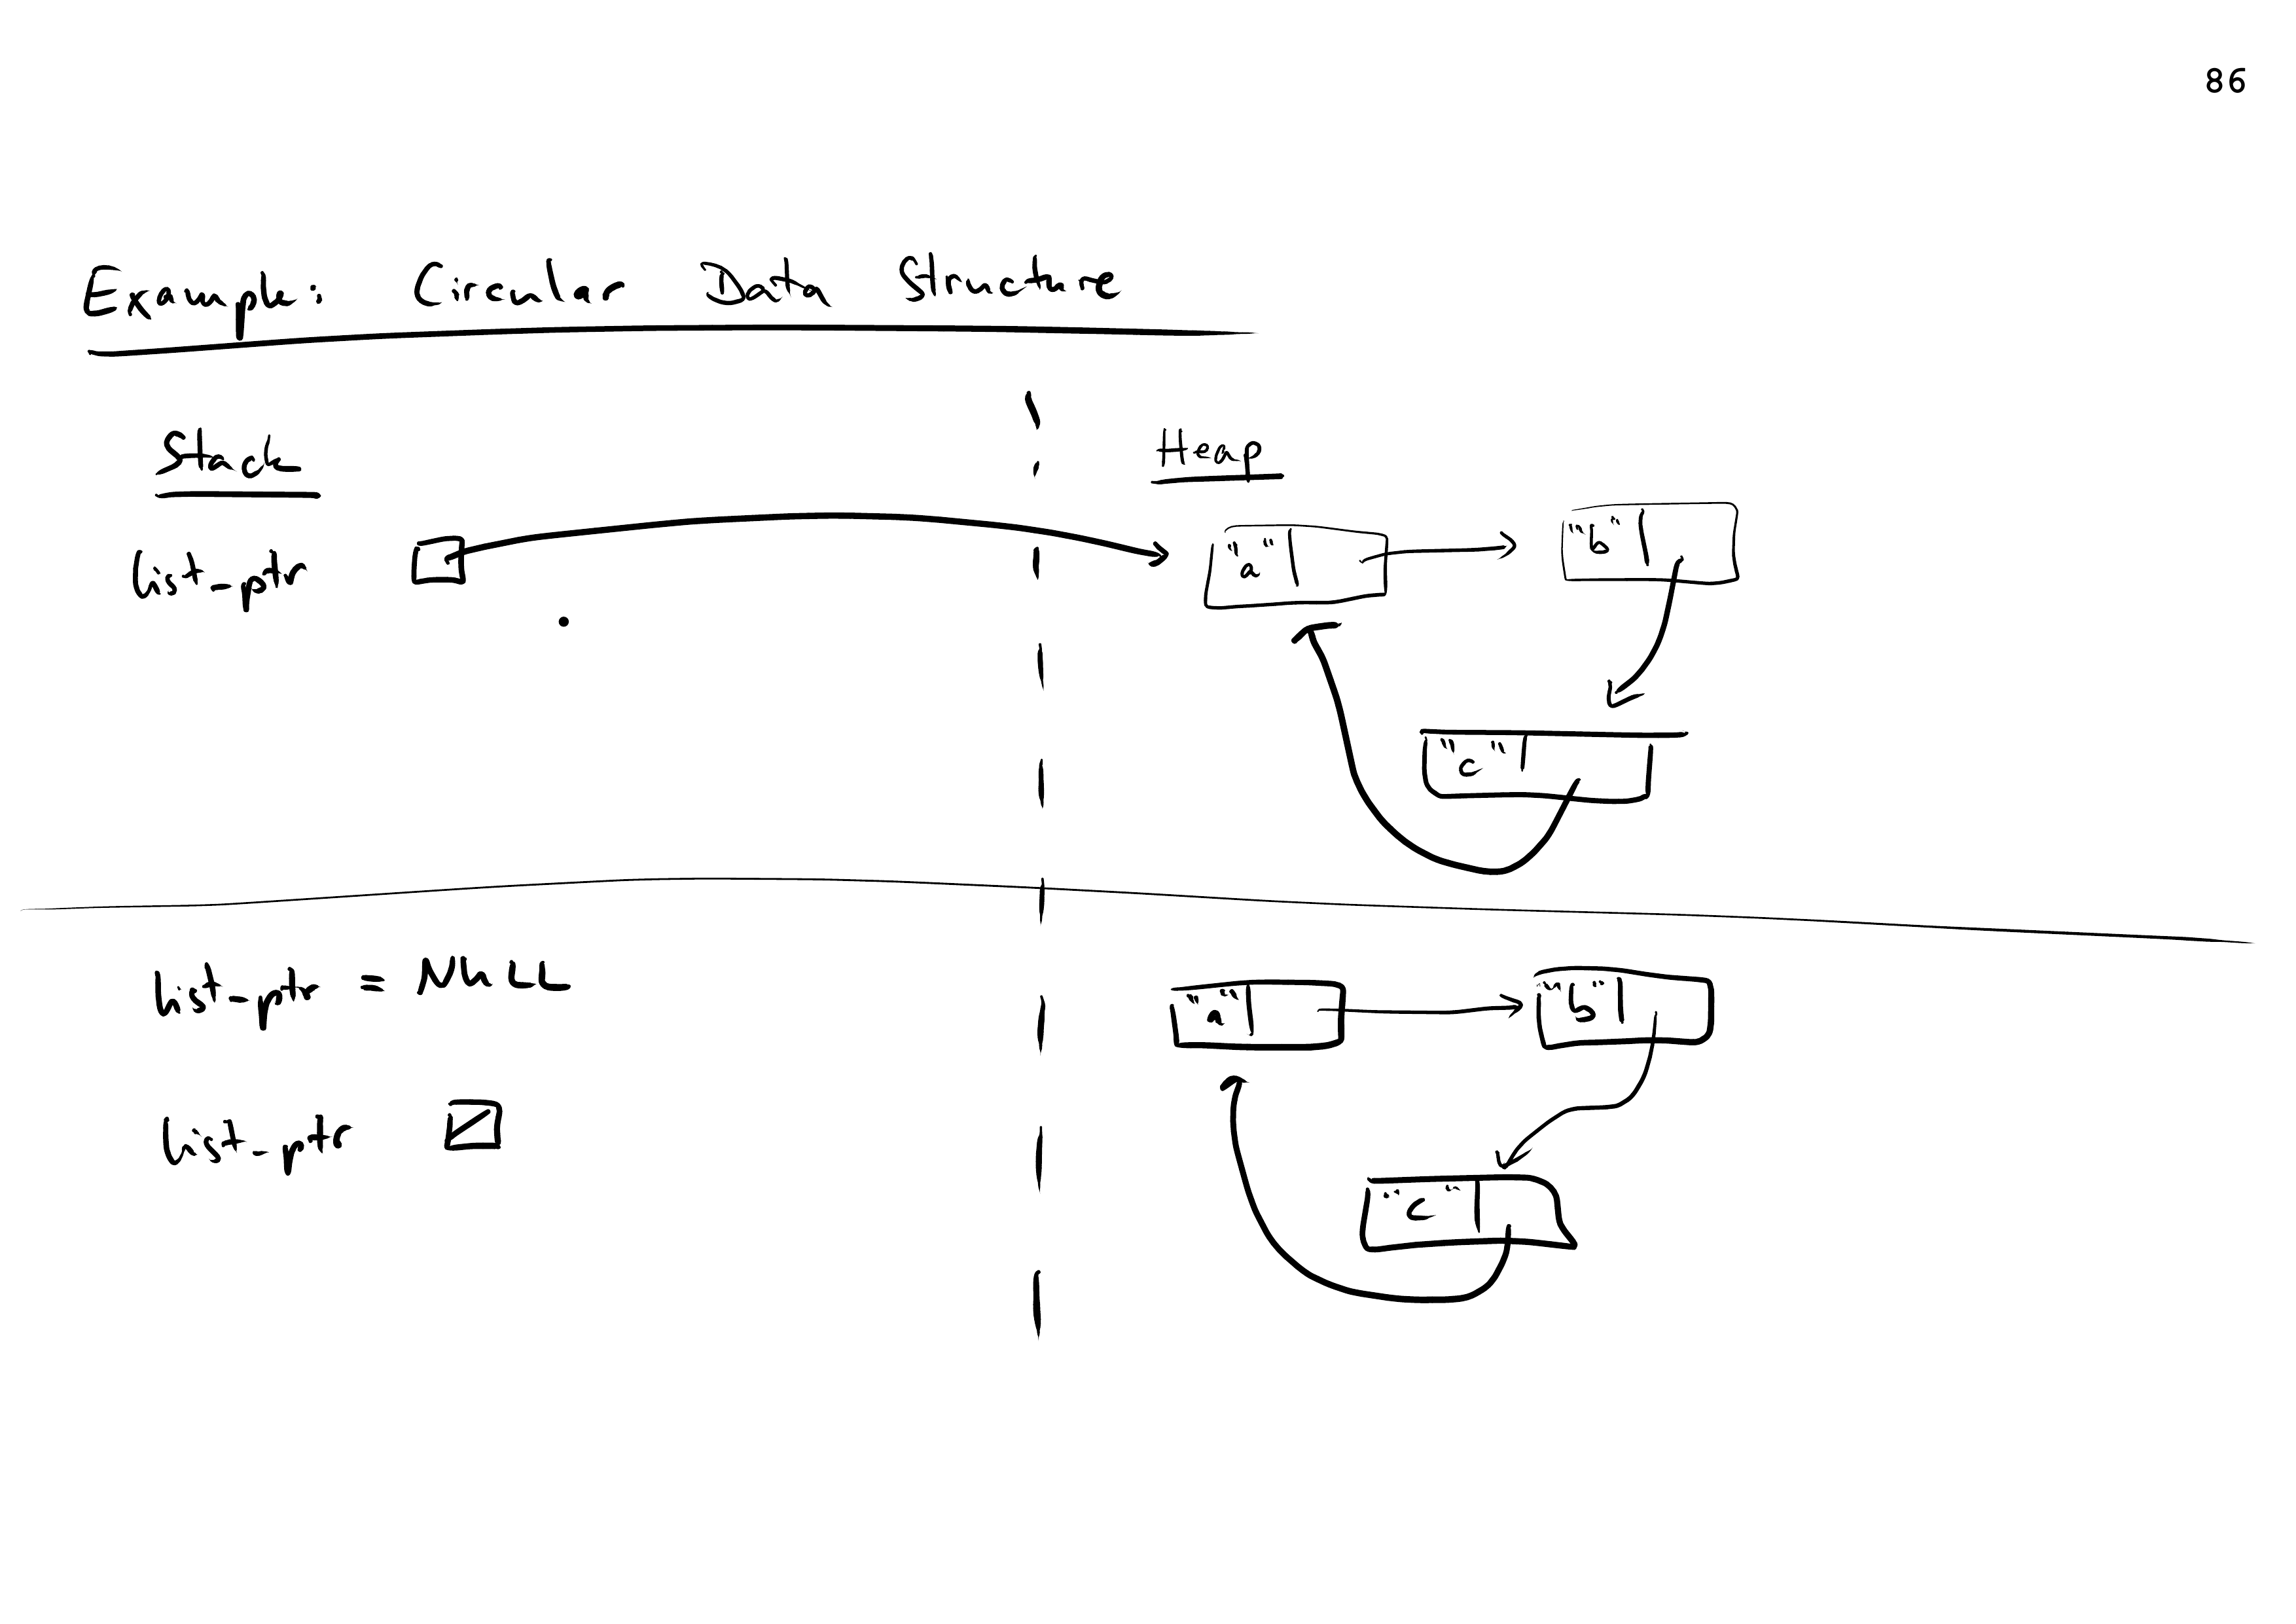 86
Example: Circular Data Structure
Stack
Heap
list_ptr
"a"
"b"
"c"
list_ptr = NULL
"a"
"b"
list_ptr
"c"